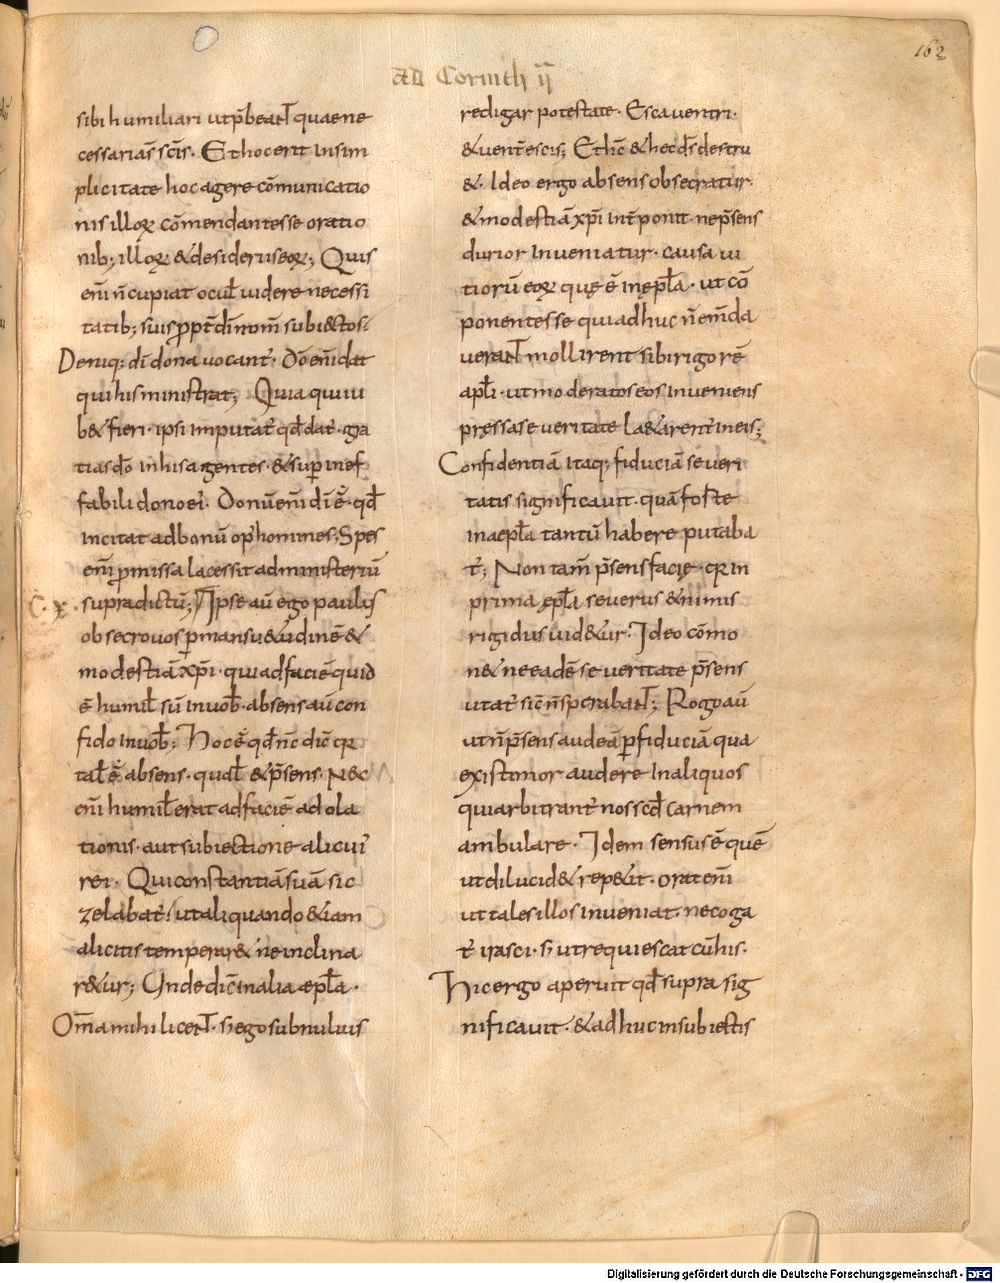 162
AD Corinth II
sibi humiliari ut p̄beant quae ne
cessaria s̄ sc̄is. Et hoc erit in sim
plicitate hoc agere cōmunicatio
nis illoꝝ cōmendantes se oratio
nib; illoꝝ & desideriis eoꝝ; Quis
eni̅ n̄ cupiat ocul̄ videre necessi
tatib; suis ꝓpt̄ dī nom̄ subiectos.
Deniq; dī dona vocant̄. Dō em̄ dat
qui his ministrat; Quia qui iu
b& fieri. ipsi imputat̄ qd̄ dat̄. gra
tias dō in his agentes. & sup inef
fabili dono ei'. Donū em̄ dī ē. qd̄
incitat ad bonū op' homines; Spes
em̄ ꝓmissa lacessit administeriū
C. X. supradictū; Ipse aū ego paulus
obsecro vos p mansu&udinē &
modestiā xp̄i. qui ad faciē quid
ē humil̄ sū in uob̄. absens aū con
fido in uob̄; Hoc ē qd̄ nc̄ dic̄ qr
tal̄ ē absens. qual̄ & p̄sens. Nec
em̄ humil̄ erat ad faciē adola
tionis. aut subiectione alicui'
rei. Qui constantiā suā sic
zelabat̄. ut aliquando & iam
a licitis temperar& ne inclina
r&ur; Unde dic̄ in alia epl̄a.
Om̄a mihi licent. s; ego sub nulluis
redigar potestate. Esca ventri.
& vent̄ escis; Et hc̄ & hec ds̄ destru
&. Ideo ergo absens obsecratur.
& modestiā xp̄i int̄ponit. ne p̄sens
durior inveniatur. causa vi
tiorū eoꝝ quę ē in epl̄a. ut cō
ponentes se qui adhuc n̄ em̄da
verant mollirent sibi rigorē
apl̄i. ut moderatos eos inveniens
pressa severitate l&arent̄ in eis;
Confidentiā itaq; fiduciā severi
tatis significavit. quā foste
in aepl̄a tantū habere putaba
t̄; Non tam̄ p̄sens facię. qr in
prima epl̄a severus & nimis
rigidus vid&ur. Ideo cōmo
n& ne eadē severitate p̄sens
utat̄ sic̄ n̄ sperabant; Rogo aū
ut n̄ p̄sens audeā p fiduciā qua
existimor audere in aliquos
qui arbitrant̄ nos scd̄ carnem
ambulare. Idem sensus ē quē
ut dilucid& rep&it. orat em̄
ut tales illos inveniat. ne coga
t̄ irasci. s; ut requiescat cū his.
Hic ergo aperuit qd̄ supra sig
nificavit. & adhuc insubiectis
Digitalisierung gefördert durch die Deutsche Forschungsgemeinschaft - DFG